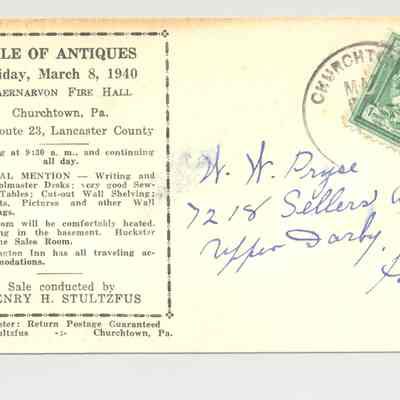 LE OF ANTIQUES
iday, March 8, 1940
AERNARVON FIRE HALL
Churchtown, Pa.
oute 23, Lancaster County
g at 9:30 a. m., and continuing
all day.
AL MENTION — Writing and
olmaster Desks; very good Sew-
Tables; Cut-out Wall Shelving;
ts, Pictures and other Wall
ngs.
om will be comfortably heated.
ng in the basement. Huckster
ne Sales Room.
gton Inn has all traveling ac-
modations.
Sale conducted by
ENRY H. STULTZFUS
ster: Return Postage Guaranteed
ultzfus -:- Churchtown, Pa.
CHURCHTO
W. W. Pryse
7218 Sellers
Upper Darby